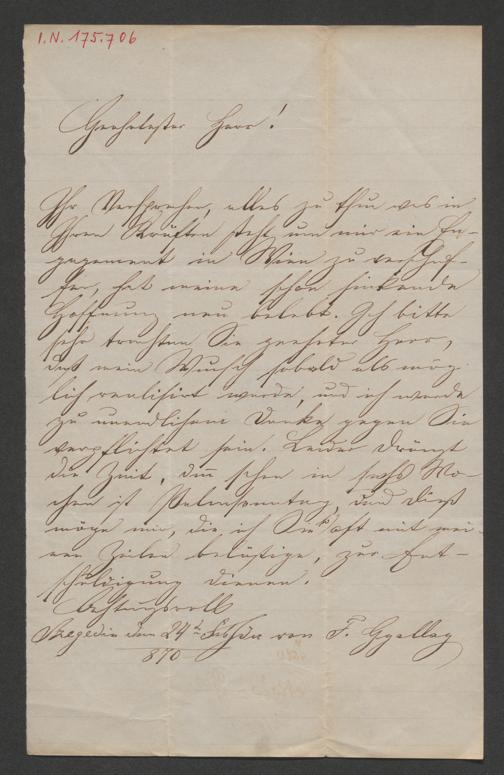 I.N. 175.706
Geehrtester Herr!
Ihr Versprechen, alles zu thun was in
Ihren Kräften steht um mir ein En-
gagement in Wien zu verschaf-
fen, hat meine schon sinkende
Hoffnung neu belebt. Ich bitte
sehr trachten Sie geehrter Herr,
daß mein Wunsch sobald als mög-
lich realisirt werde, und ich werde
zu unendlichem Danke gegen Sie
verpflichtet sein. Leider drängt
die Zeit, denn schon in sechs Wo-
chen ist Palmsonntag, und dieß
möge mir, die ich Sie so oft mit mei-
nen Zeilen belästige, zur Ent-
schuldigung dienen.
Achtungsvoll
Szegedin den 24t von F.
870